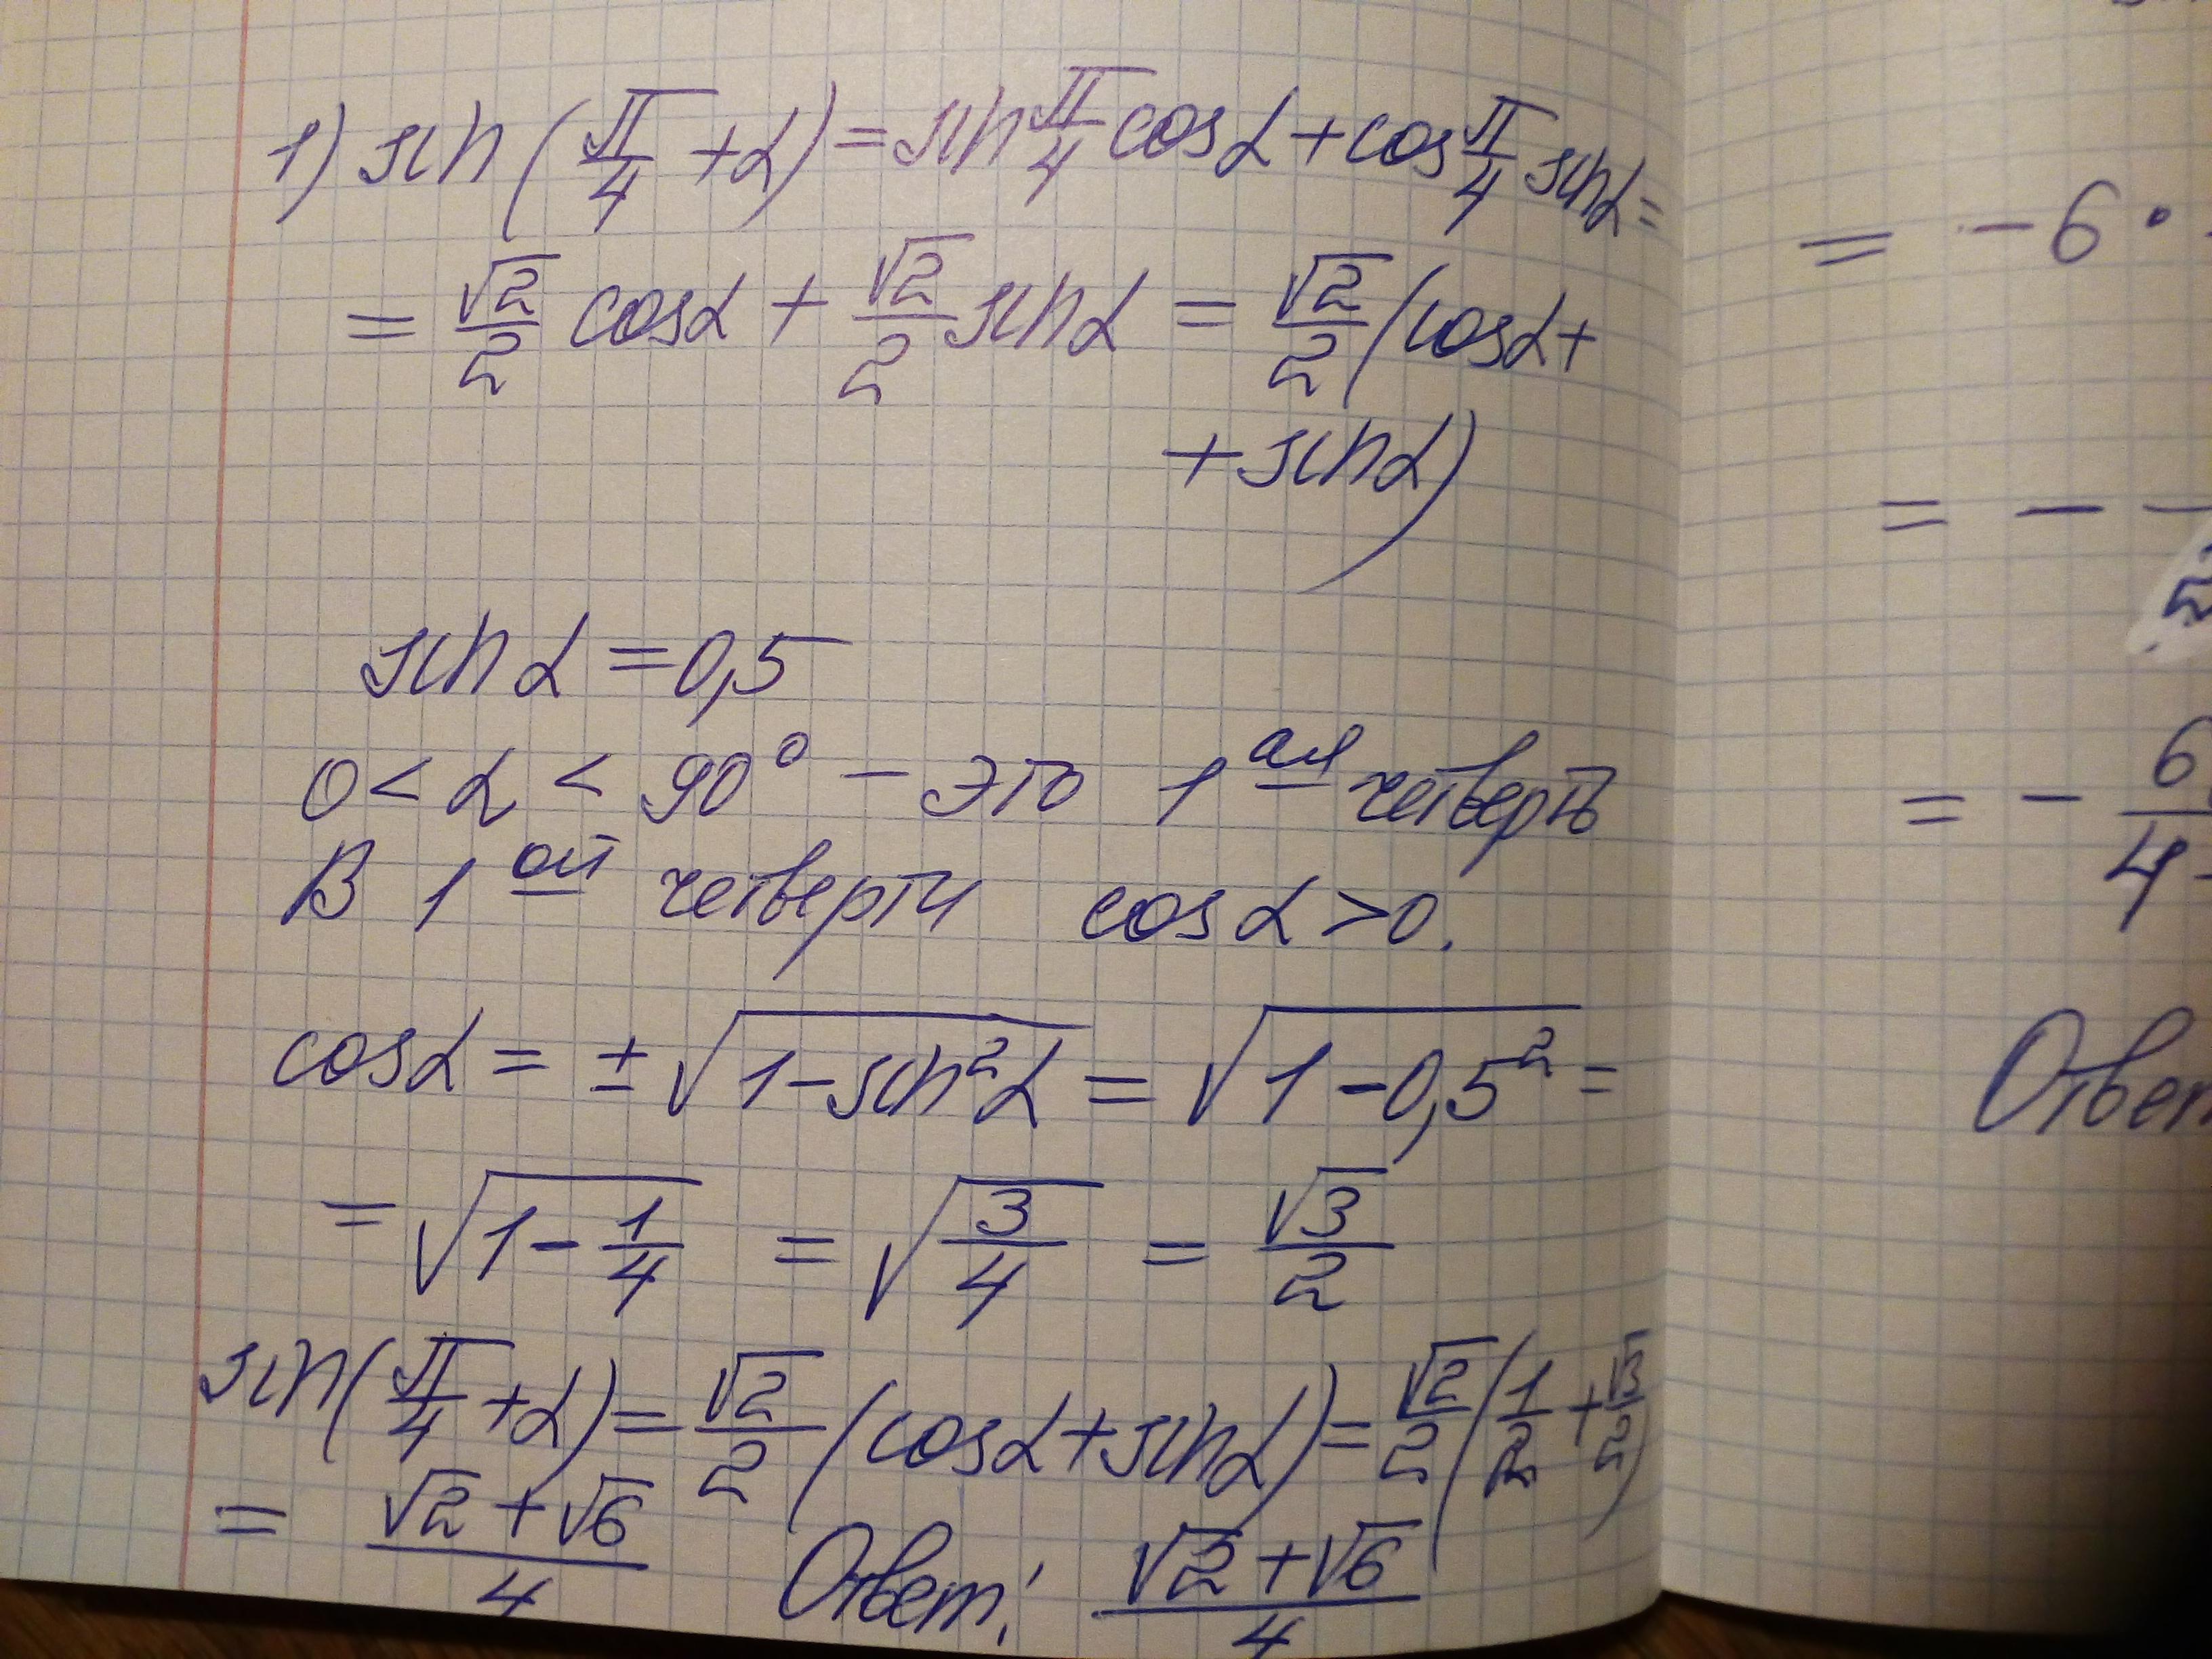 1) sin(π/4 + α) = sin π/4 cosα + cos π/4 sinα =
= √2/2 cosα + √2/2 sinα = √2/2 (cosα +
+ sinα)
sin α = 0,5
0 < α < 90° – это 1 ая четверть
В 1 ой четверти cos α > 0.
cosα = ± √(1 – sin²α) = √(1 – 0,5²) =
= √(1 – 1/4) = √(3/4) = √3/2
sin(π/4 + α) = √2/2 (cosα + sinα) = √2/2 (1/2 + √3/2)
= (√2 + √6)/4 Ответ: (√2 + √6)/4
= – 6 ·
= –
2
= – 6/4
Ответ